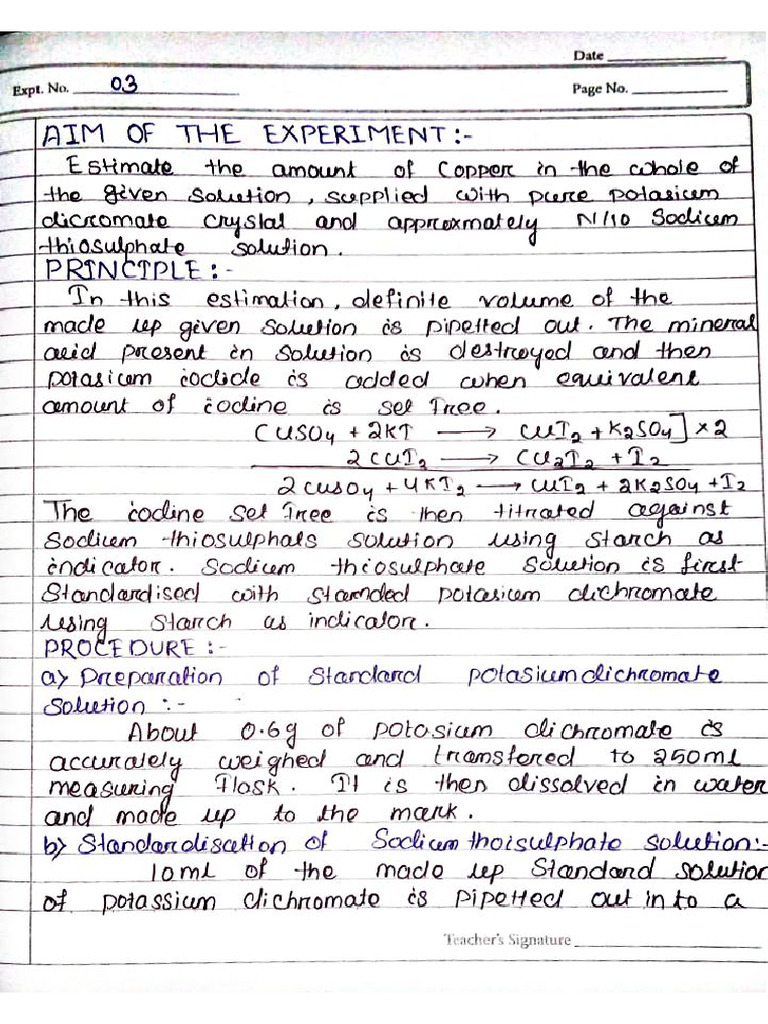 Date
Expt. No. 03
Page No.
AIM OF THE EXPERIMENT :-
Estimate the amount of Copper in the whole of
the given solution, supplied with pure potasium
dicromate crystal and approxmately N/10 Sodium
thiosulphate solution.
PRINCIPLE :-
In this estimation, definite volume of the
made up given solution is pipetted out. The mineral
acid present in solution is destroyed and then
potasium iodide is added when equivalent
amount of iodine is set free.
CUSO4 + 2KI ⟶ CUI2 + K2SO4] × 2
2CUI2 ⟶ CU2I2 + I2
2CUSO4 + 4KI2 ⟶ CUI2 + 2K2SO4 + I2
The iodine set free is then titrated against
Sodium thiosulphats solution using starch as
indicator. Sodium thiosulphate solution is first
Standardised with starnded potasium dichromate
using starch as indicator.
PROCEDURE :-
a) Preparation of Standard potasium dichromate
Solution :-
About 0.6g of potasium dichromate is
accurately weighed and transfered to 250ml
measuring flask. It is then dissolved in water
and made up to the mark.
b) Standardisation of Sodium thoisulphate solution:-
10ml of the made up Standard solution
of potassium dichromate is pipetted out in to a
Teacher's Signature